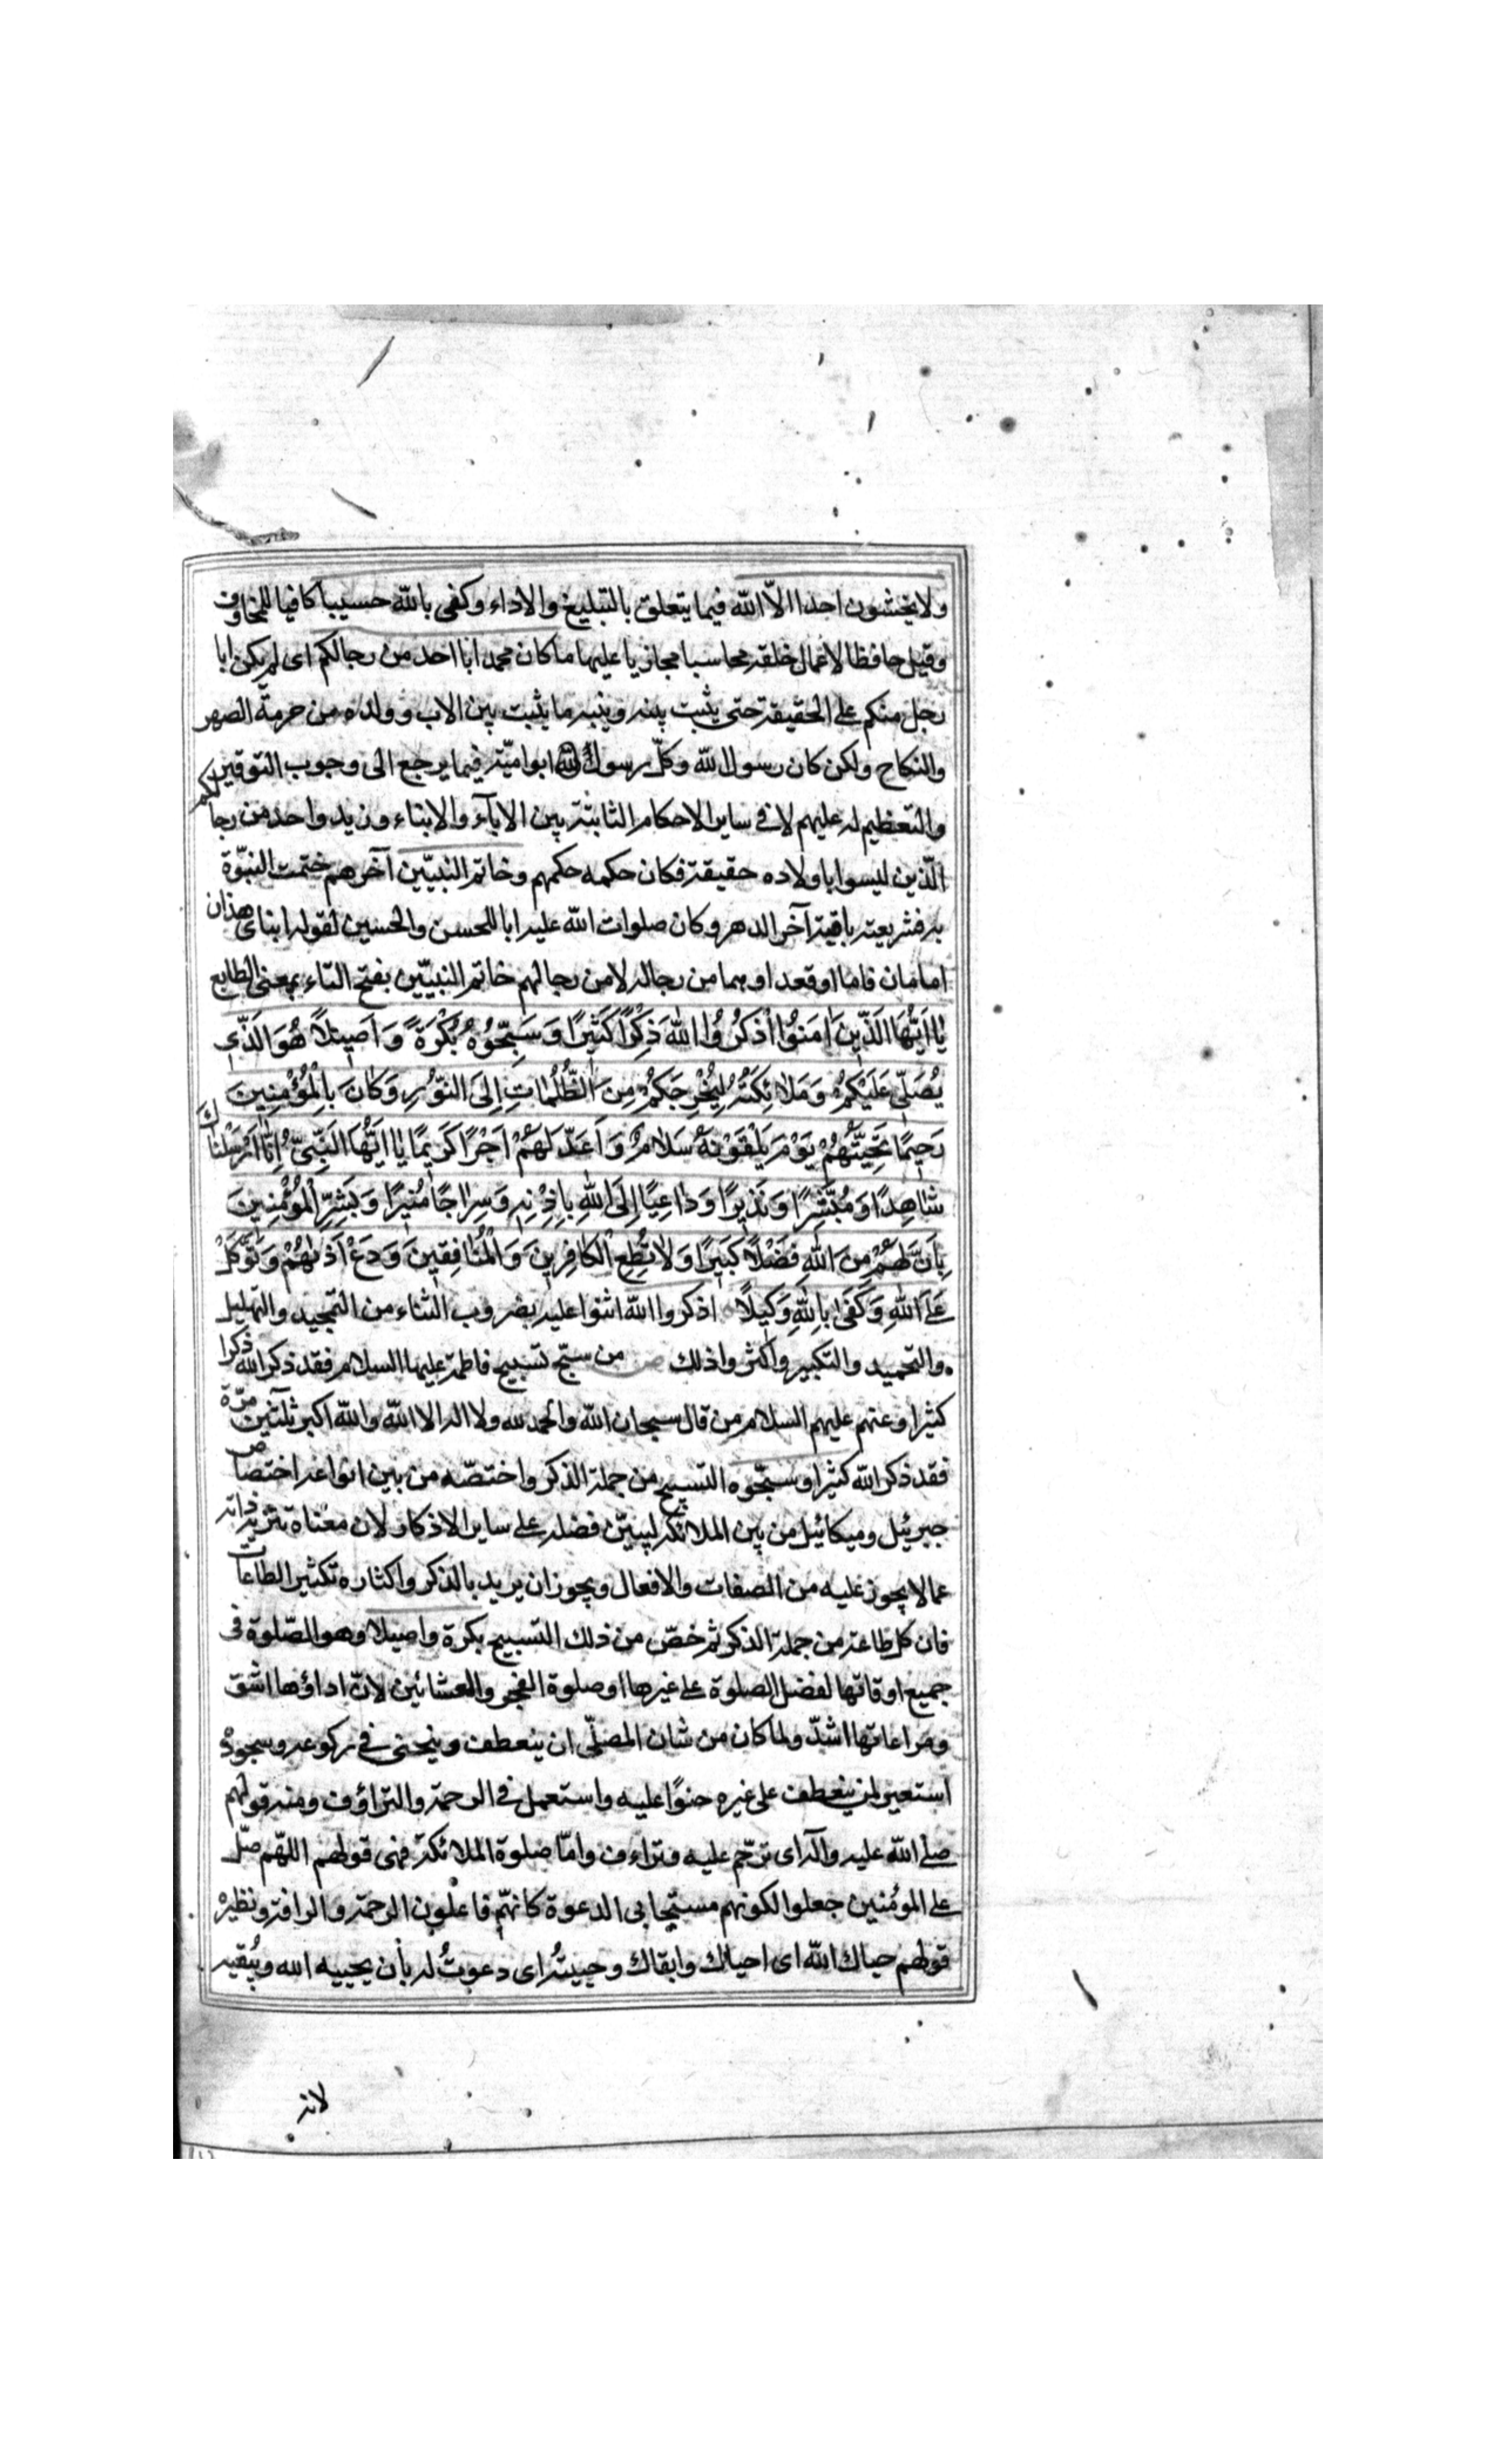 ولا يخشون احدا الاّ الله فيما يتعلق بالتبليغ والاداء وكفى بالله حسيبا كافيا للمخاوف
وقيل حافظا لاعمال خلقه محاسبا مجازيا عليها ما كان محمد ابا احد من رجالكم اى لم يكن ابا
رجل منكم على الحقيقة حتى يثبت بينه وبينه ما يثبت بين الاب وولده من حرمة الصهر
والنكاح ولكن كان رسول الله وكلّ رسول الله ابو امّته فيما يرجع الى وجوب التوقير
والتعظيم له عليهم لا فى ساير الاحكام الثابتة بين الاباۤء والابناء وزيد واحد من رجالكم
الّذين ليسوا باولاده حقيقة فكان حكمه حكمهم وخاتم النبيّين آخرهم ختمت النبوّة
به فشريعته باقية آخر الدهر وكان صلوات الله عليه ابا للحسن والحسين لقوله ابناى هذان
امامان قاما او قعدا وهما من رجاله لا من رجالهم خاتم النبيّين بفتح التاء بمعنى الطابع
يَا اَيُّهَا الَّذِينَ اٰمَنُوا اْذْكُرُوا اللهَ ذِكْرًا كَثِيرًا وَسَبِّحُوُهُ بُكْرَةً وَاَصِيلًا هُوَ الَّذِّى
يُصَلِّى عَلَيْكُمُ وَمَلَائِكَتُهُ لِيُخْرِجَكُمُ مِنَ الظُّلُمَاتِ اِلَى النّوُرِ وَكَانَ بِالْمُؤْمِنِينَ
رَحِيمًا تَحِيَّتُهُمْ يَوْمَ يَلْقَوْنَهُ سَلَامٌ وَاَعَدَّ لَهُمْ اَجْرًا كَرِيمًا يَا اَيُّهَا النَّبِىُّ اِنَّا اَرْسَلْنَاكَ
شَاهِدًا وَمُبَشِّرًا وَنَذِيرًا وَدَاعِيًا اِلَى اللهِ بِاِذْنِهِ وَسِرَاجًا مُنِيرًا وَبَشِّرِ الْمُؤْمِنِينَ
بِاَنَّ لَهُمْ مِنَ اللهِ فَضْلًا كَبِيرًا وَلَا تُطِعِ الْكَافِرِينَ وَالْمُنَافِقِينَ وَدَعْ اَذٰيهُمْ وَتَوَكَّلْ
عَلَى اللهِ وَكَفَى بِاللهِ وَكِيلًا اذكروا الله اثنوا عليه بضروب الثناء من التمجيد والتهليل
والتحميد والتكبير واكثروا ذلك ص من سبّح تسبيح فاطمة عليها السلام فقد ذكر الله ذكرا
كثيرا وعنهم عليهم السلام من قال سبحان الله والحمد لله ولا اله الا الله والله اكبر ثلثين مرّة
فقد ذكر الله كثيرا وسبّحوه التسبيح من جملة الذكر واختصّه من بين انواعه اختصاص
جبرئيل وميكائيل من بين الملائكة ليبيّن فضله على ساير الاذكار لان معناه تنزيه ذاته
عما لا يجوز عليه من الصفات والافعال ويجوز ان يريد بالذكر واكثاره تكثير الطاعات
فان كل طاعة من جملة الذكر ثم خصّ من ذلك التسبيح بكرة واصيلا وهو الصّلوة فى
جميع اوقاتها لفضل الصلوة على غيرها او صلوة الفجر والعشائين لانّ اداؤها اشق
ومراعاتها اشدّ ولما كان من شان المصلّى ان ينعطف وينحنى فى ركوعه وسجوده
استعير لمن ينعطف على غيره حنوًا عليه واستعمل فى الرحمة والتراؤف ومنه قولهم
صلى الله عليه وآله اى ترحّم عليه وتراءف وامّا صلوة الملائكة فهى قولهم اللهّم صلّ
على المؤمنين جعلوا لكونهم مستجابى الدعوة كانهّم فاعلون الرحمة والرافة ونظيره
قولهم حياك الله اى احياك وابقاك وحييتُه اى دعوتُ له بأن يحييه الله ويُبقيه
لانه